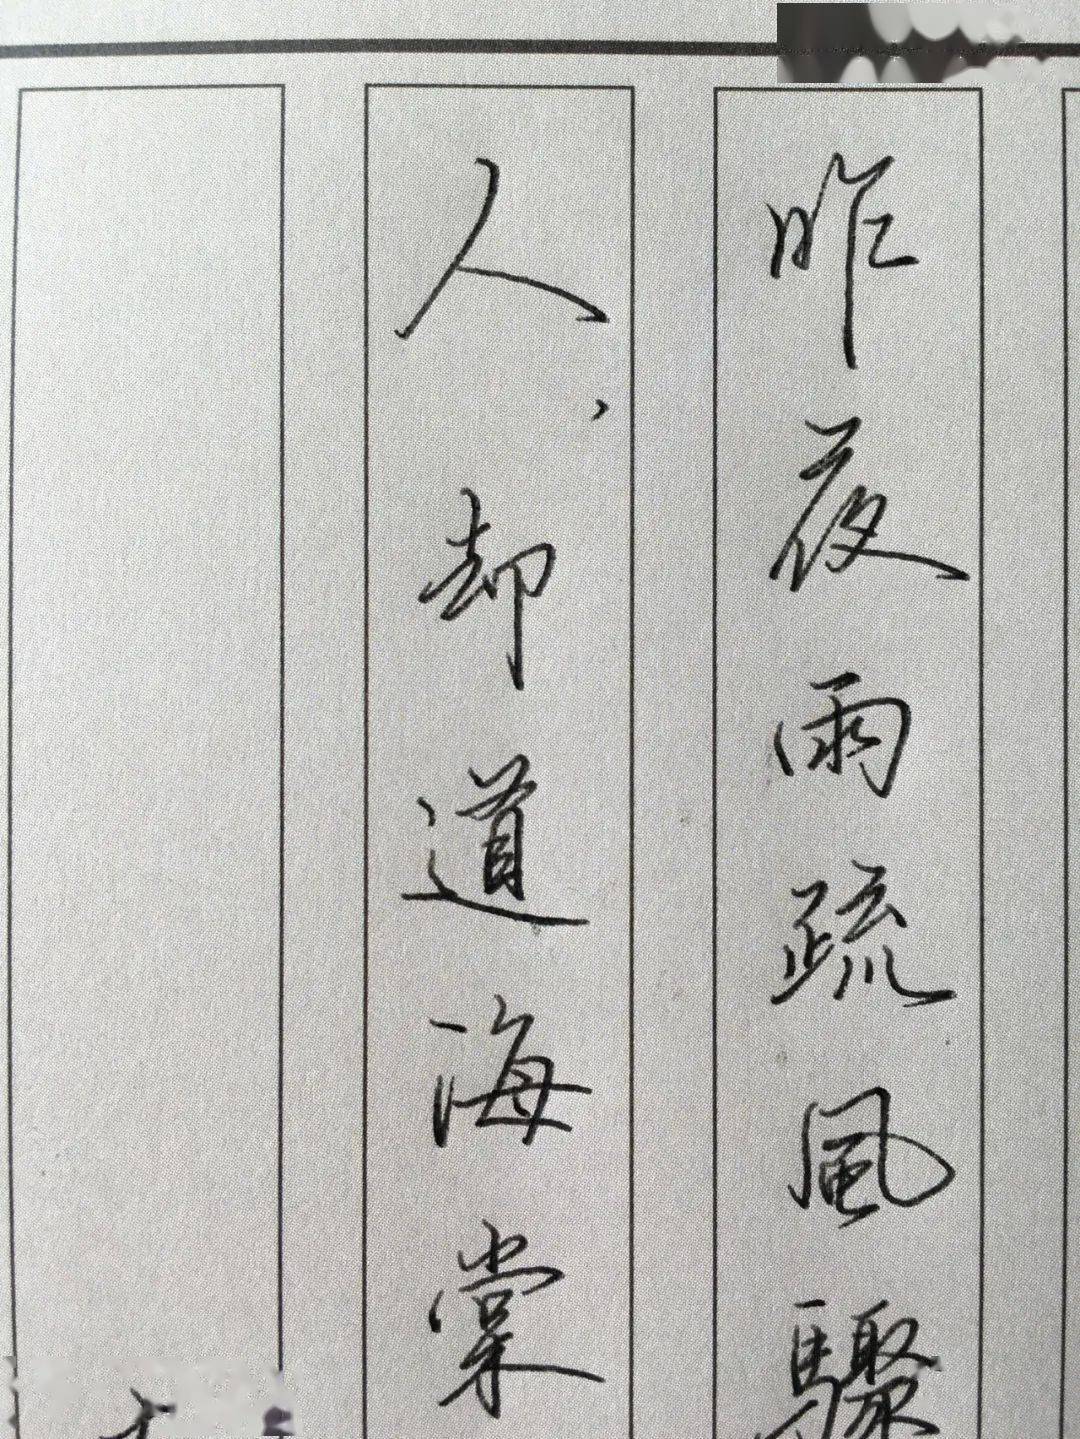 昨夜雨疏風驟
人，却道海棠